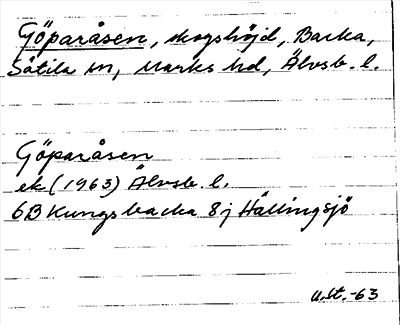 Göparåsen, skogshöjd, Backa,
Sätila sn, Marks hd, Älvsb. l.
Göparåsen
ek (1963) Älvsb. l.
6B Kungsbacka 8j Hällingsjö
u.st.-63